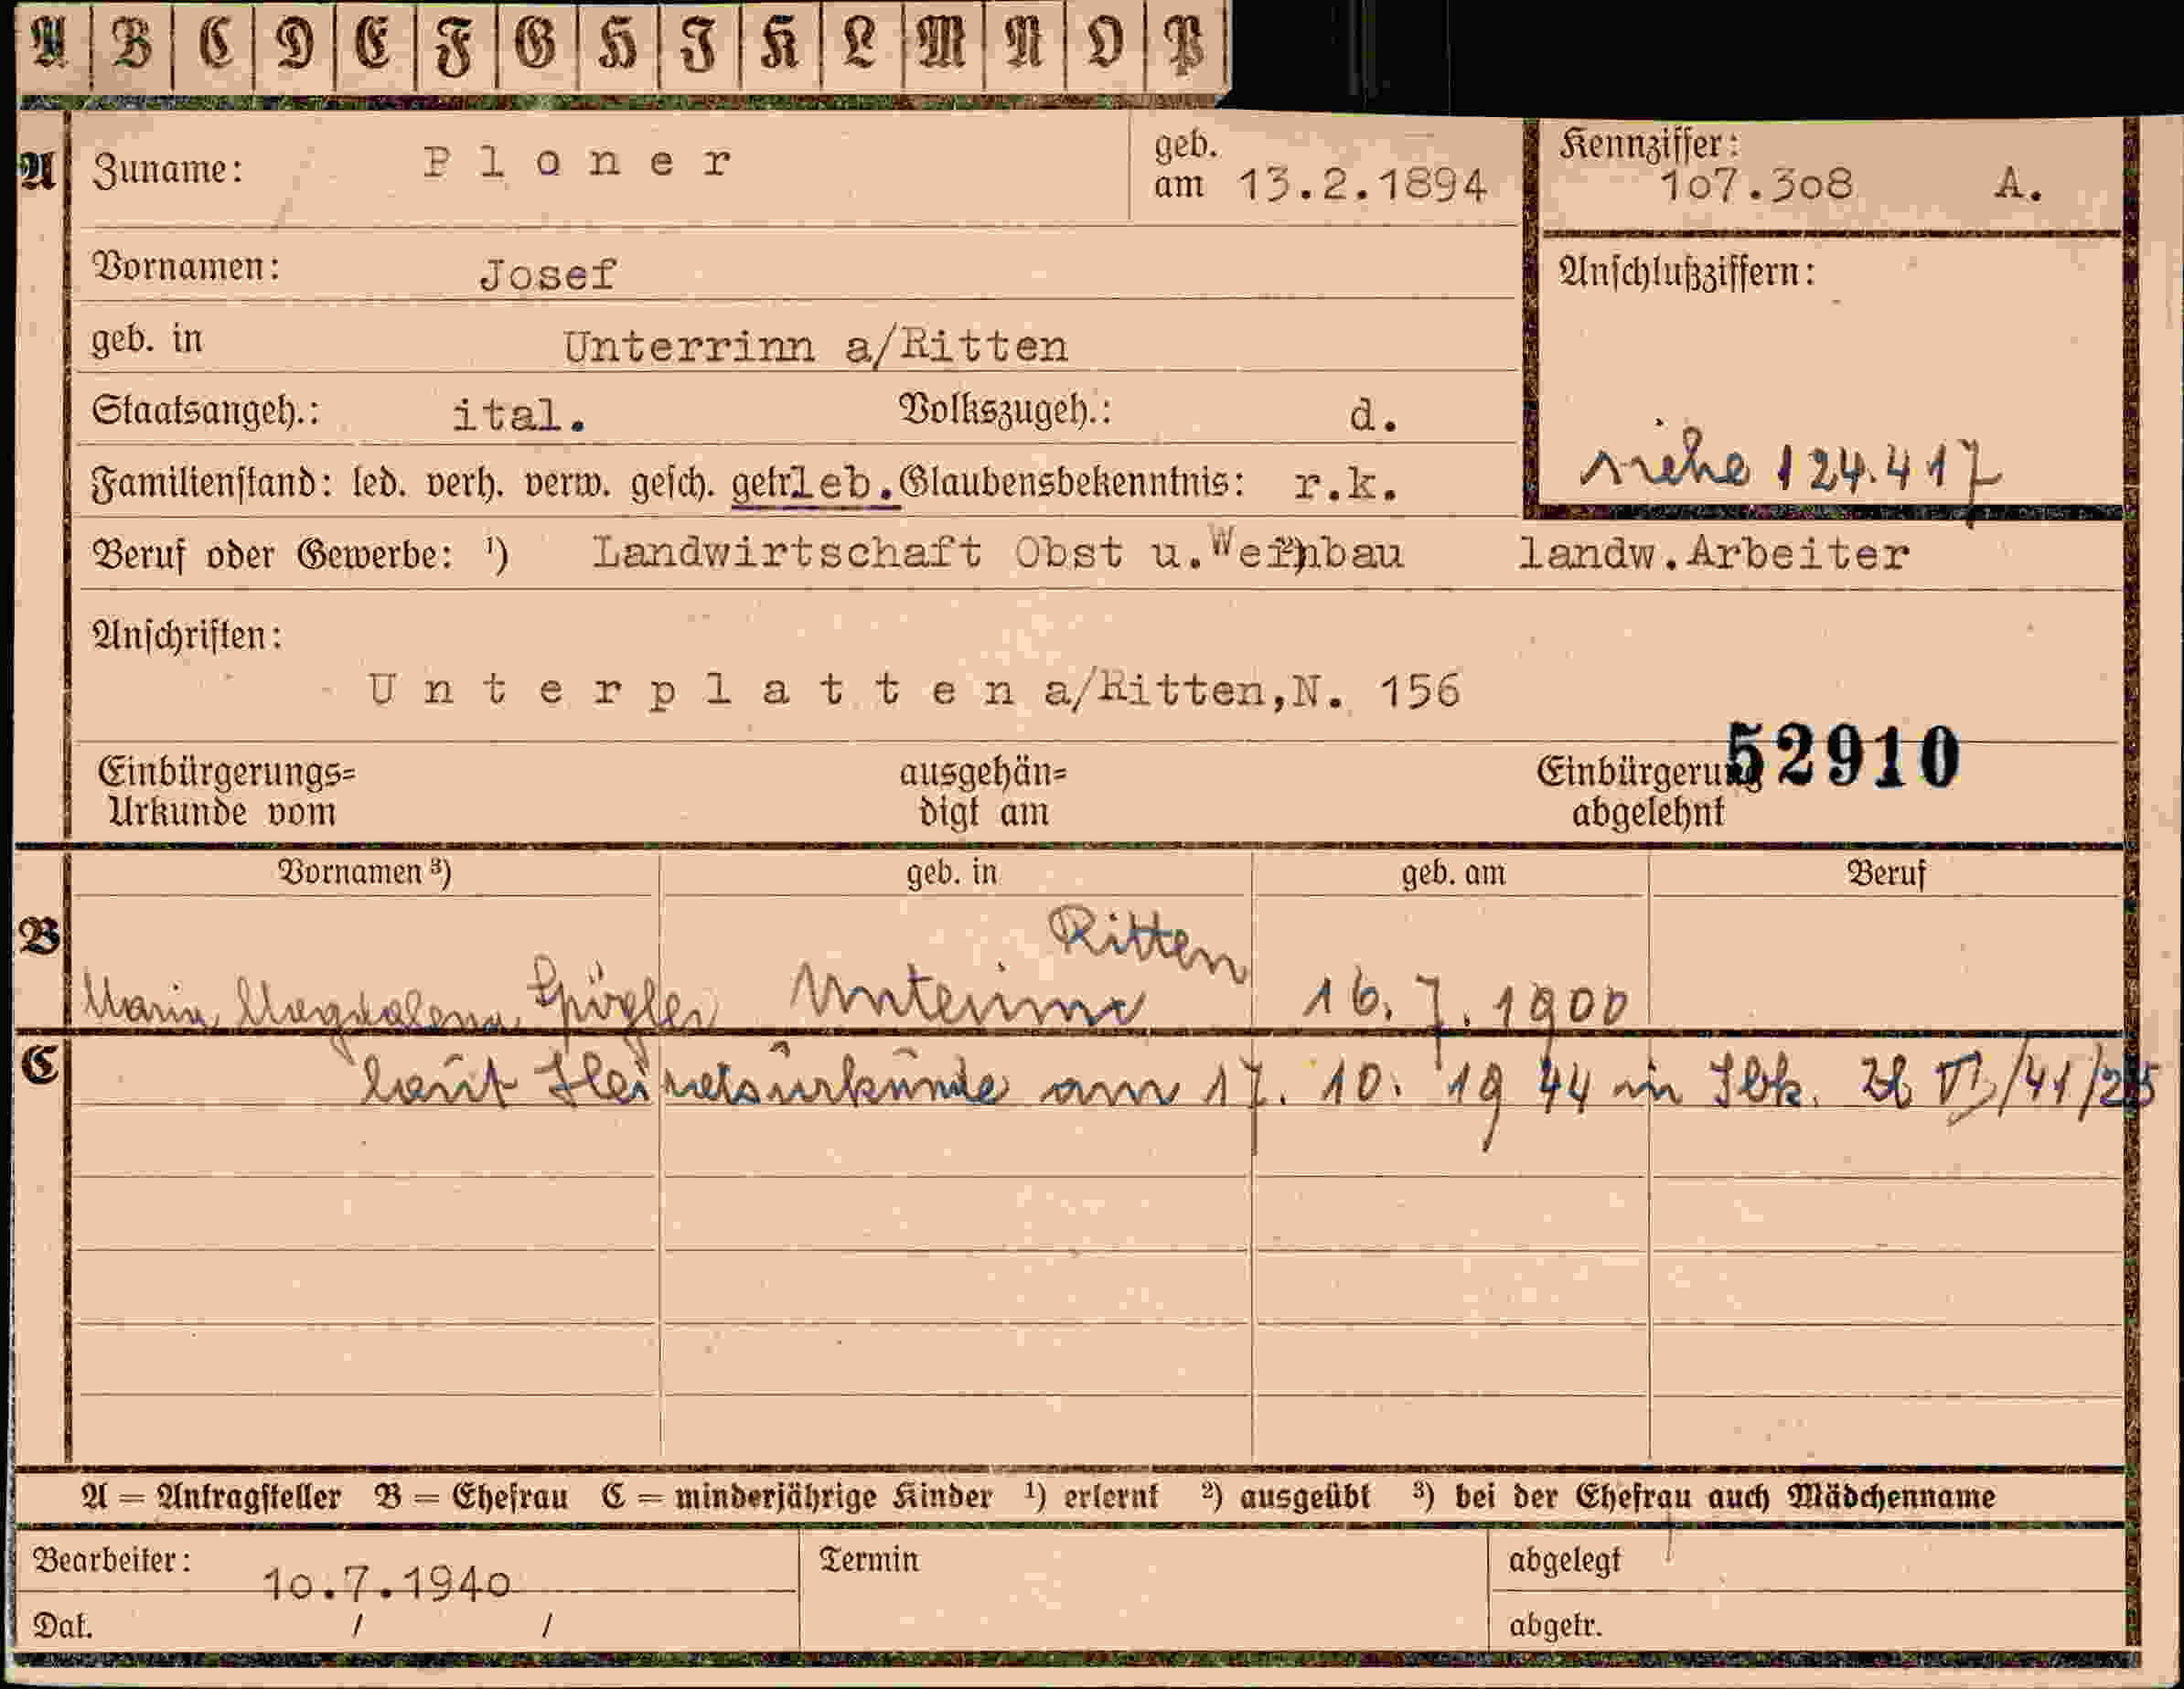 A B C D E F G H I K L M N O P
A Zuname: Ploner geb. am 13.2.1894 Kennziffer: 107.308 A.
Vornamen: Josef Anschlußziffern:
geb. in Unterrinn a/Ritten
Staatsangeh.: ital. Volkszugeh.: d.
Familienstand: led. verh. verw. gesch. getr.leb. Glaubensbekenntnis: r.k. siehe 124.417
Beruf oder Gewerbe: ¹) Landwirtschaft Obst u.Weinbau ²) landw.Arbeiter
Anschriften:
Unterplatten a/Ritten,N. 156
52910
Einbürgerungs= ausgehän= Einbürgerung
Urkunde vom digt am abgelehnt
Vornamen ³) geb. in geb. am Beruf
B Ritten
Maria Magdalena Spögler Unterinn 16.7.1900
C laut Heiratsurkunde am 17. 10. 1944 in Ibk.
A = Antragsteller B = Ehefrau C = minderjährige Kinder ¹) erlernt ²) ausgeübt ³) bei der Ehefrau auch Mädchenname
Bearbeiter: 10.7.1940 Termin abgelegt
Dat. / / abgetr.